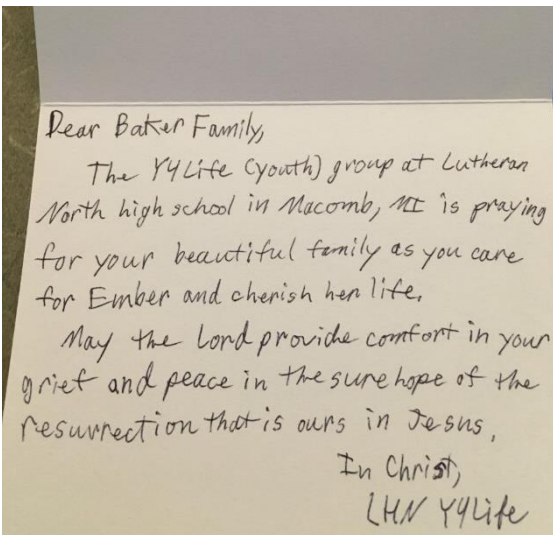 Dear Baker Family,
The Y4Life (youth) group at Lutheran
North high school in Macomb, MI is praying
for your beautiful family as you care
for Ember and cherish her life.
May the Lord provide comfort in your
grief and peace in the sure hope of the
resurrection that is ours in Jesus.
In Christ,
LHN Y4Life